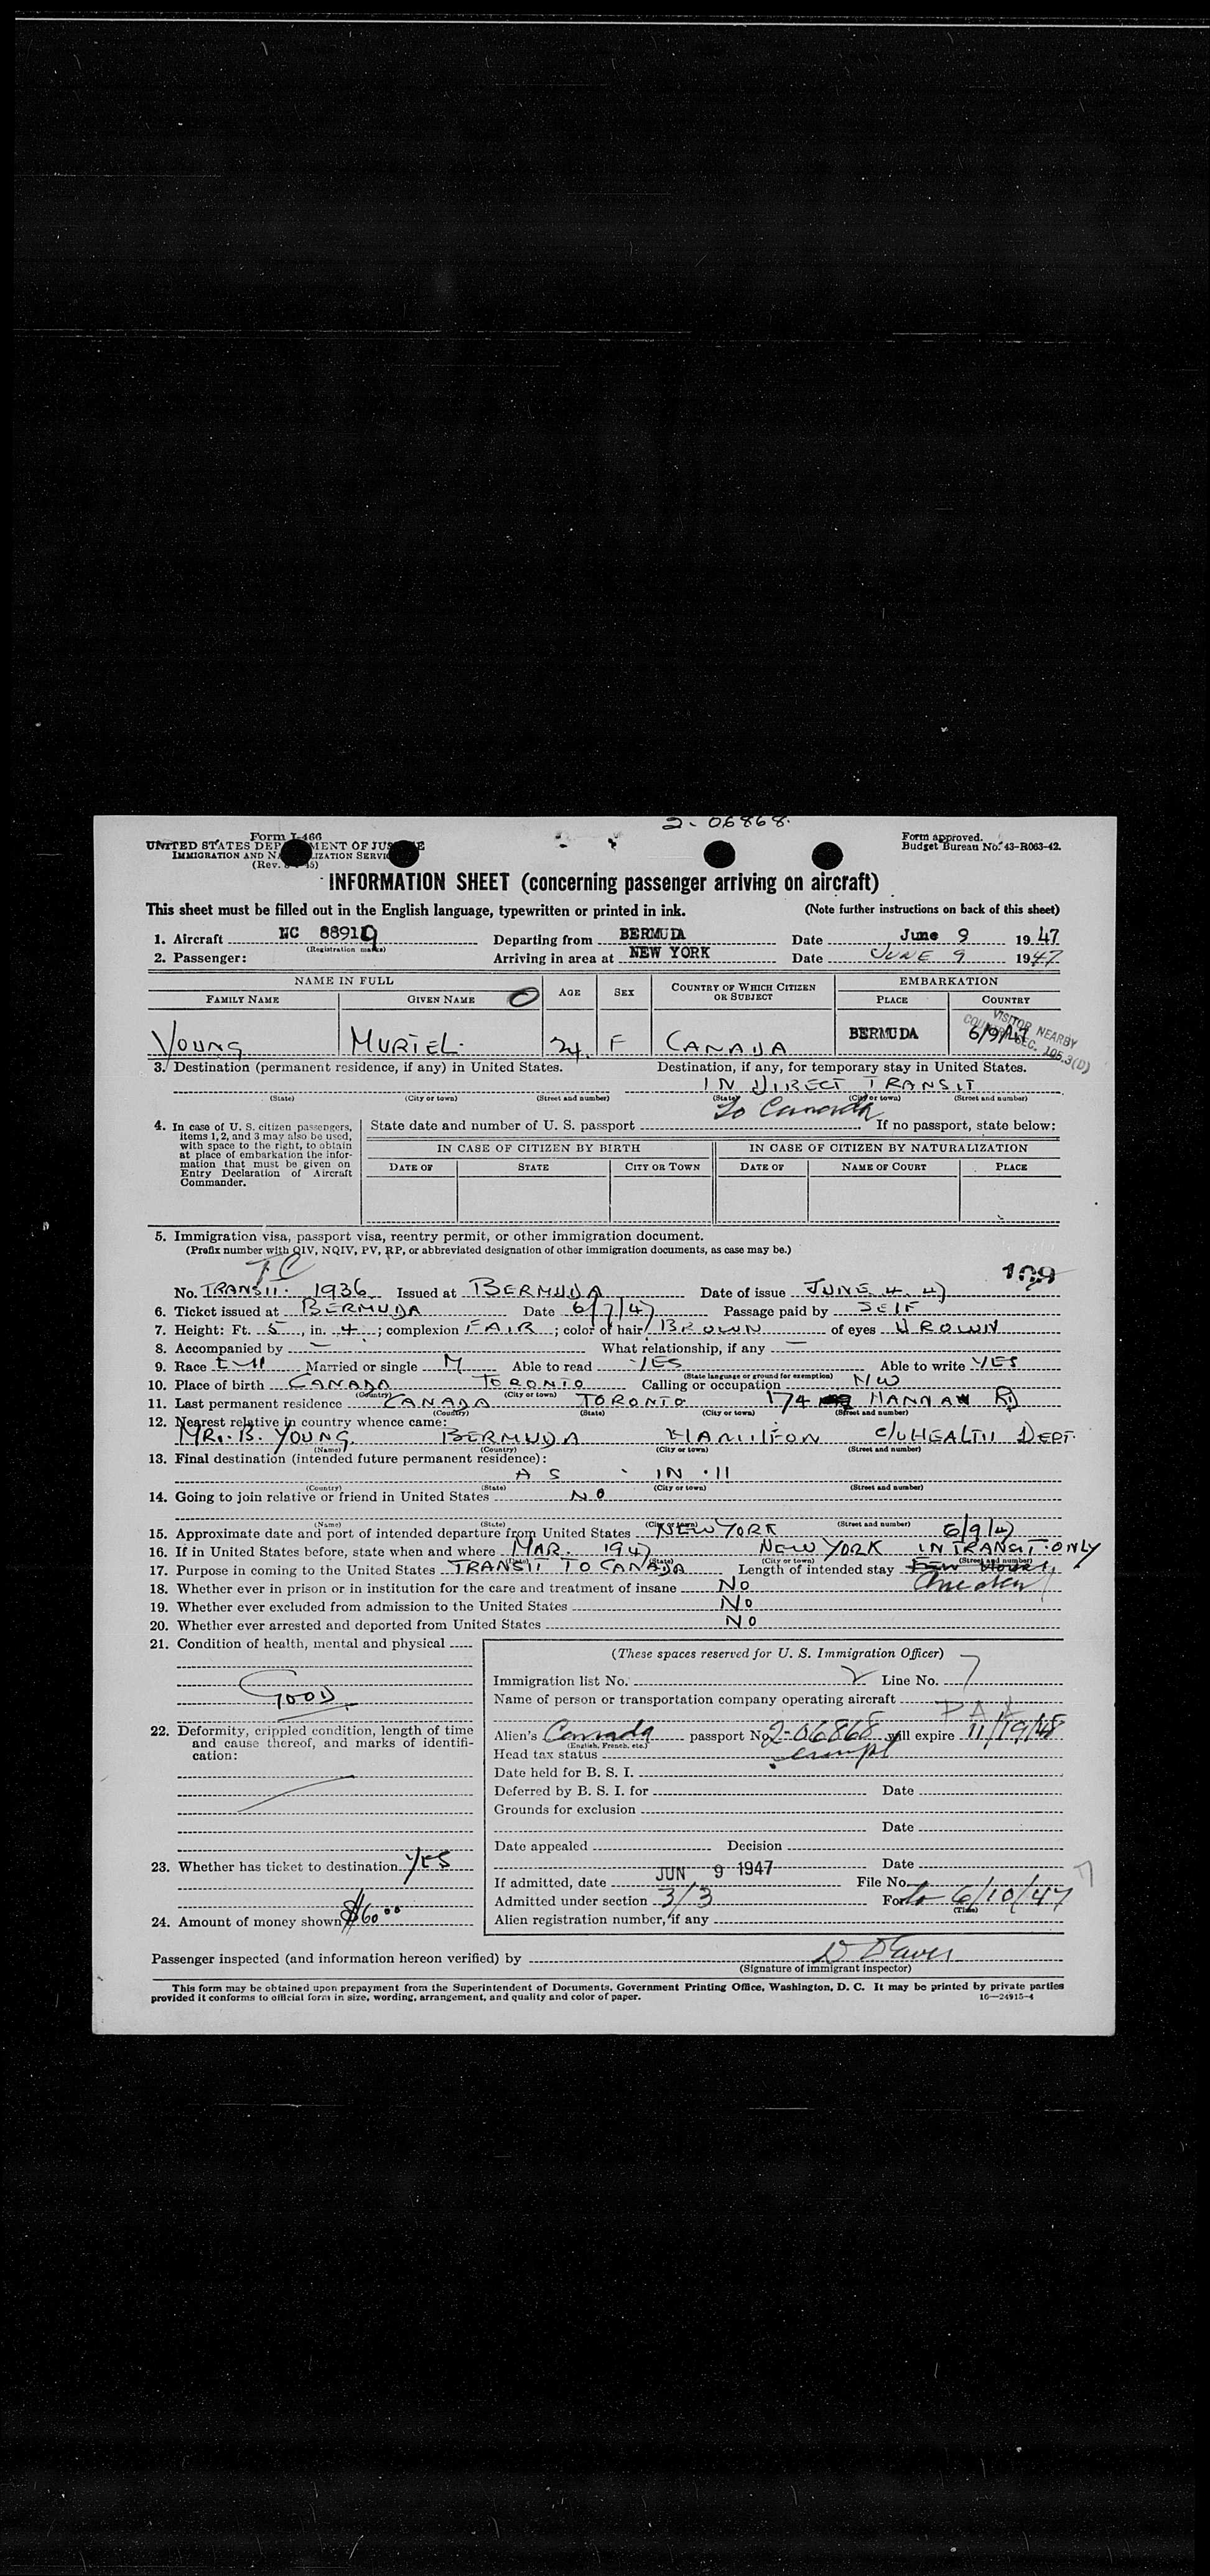 2-06868
Form I-466
UNITED STATES DEPARTMENT OF JUSTICE
IMMIGRATION AND NATURALIZATION SERVICE
(Rev. 45)
Form approved.
Budget Bureau No. 43-R063-42.
INFORMATION SHEET (concerning passenger arriving on aircraft)
This sheet must be filled out in the English language, typewritten or printed in ink. (Note further instructions on back of this sheet)
1. Aircraft NC 88919 Departing from BERMUDA Date June 9 1947
(Registration marks)
2. Passenger: Arriving in area at NEW YORK Date JUNE 9 1947
NAME IN FULL AGE SEX COUNTRY OF WHICH CITIZEN OR SUBJECT EMBARKATION
FAMILY NAME GIVEN NAME PLACE COUNTRY
YOUNG MURIEL. 24. F CANADA BERMUDA 6/9/47
VISITOR NEARBY
COUNTRY SEC. 105.3(D)
3. Destination (permanent residence, if any) in United States. Destination, if any, for temporary stay in United States.
IN DIRECT TRANSIT
(State) (City or town) (Street and number) (State) (City or town) (Street and number)
To Canada
4. In case of U. S. citizen passengers, items 1, 2, and 3 may also be used, with space to the right, to obtain at place of embarkation the information that must be given on Entry Declaration of Aircraft Commander.
State date and number of U. S. passport If no passport, state below:
IN CASE OF CITIZEN BY BIRTH IN CASE OF CITIZEN BY NATURALIZATION
DATE OF STATE CITY OR TOWN DATE OF NAME OF COURT PLACE
5. Immigration visa, passport visa, reentry permit, or other immigration document.
(Prefix number with QIV, NQIV, PV, RP, or abbreviated designation of other immigration documents, as case may be.)
TC
109
No. TRANSIT. 1936 Issued at BERMUDA Date of issue JUNE 4. 47
6. Ticket issued at BERMUDA Date 6/7/47 Passage paid by SELF
7. Height: Ft. 5, in. 4; complexion FAIR; color of hair BROWN of eyes BROWN
8. Accompanied by — What relationship, if any —
9. Race Married or single M Able to read YES Able to write YES
(State language or ground for exemption)
10. Place of birth CANADA TORONTO Calling or occupation HW
(Country) (City or town)
11. Last permanent residence CANADA TORONTO 174 HANNAH RD
(Country) (State) (City or town) (Street and number)
12. Nearest relative in country whence came:
MR. B. YOUNG. BERMUDA HAMILTON C/O HEALTH DEPT.
(Name) (Country) (City or town) (Street and number)
13. Final destination (intended future permanent residence):
AS IN 11
(Country) (State) (City or town) (Street and number)
14. Going to join relative or friend in United States NO
(Name) (State) (City or town) (Street and number)
15. Approximate date and port of intended departure from United States NEW YORK 6/9/47
16. If in United States before, state when and where MAR. 1947 NEW YORK IN TRANSIT ONLY
(Date) (State) (City or town) (Street and number)
17. Purpose in coming to the United States TRANSIT TO CANADA Length of intended stay FEW HOURS
One day
18. Whether ever in prison or in institution for the care and treatment of insane NO
19. Whether ever excluded from admission to the United States NO
20. Whether ever arrested and deported from United States NO
21. Condition of health, mental and physical
GOOD
22. Deformity, crippled condition, length of time and cause thereof, and marks of identification:
23. Whether has ticket to destination YES
24. Amount of money shown $60.00
(These spaces reserved for U. S. Immigration Officer)
Immigration list No. 2 Line No. 7
Name of person or transportation company operating aircraft
PAA
Alien's Canada passport No. 2-06868 will expire 11/19/48
(English, French, etc.)
Head tax status exempt
Date held for B. S. I.
Deferred by B. S. I. for Date
Grounds for exclusion
Date
Date appealed Decision
Date
If admitted, date JUN 9 1947 File No.
Admitted under section 3/3 For to 6/10/47
(Time)
Alien registration number, if any
Passenger inspected (and information hereon verified) by
(Signature of immigrant inspector)
This form may be obtained upon prepayment from the Superintendent of Documents, Government Printing Office, Washington, D. C. It may be printed by private parties
provided it conforms to official form in size, wording, arrangement, and quality and color of paper. 16—24915-4